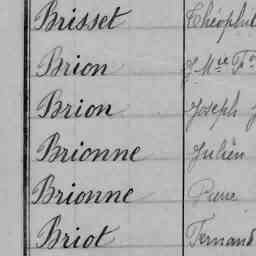 Brisset Théophil
Brion J. Mie Fs
Brion Joseph J
Brionne Julien
Brionne Pierre
Briot Fernand